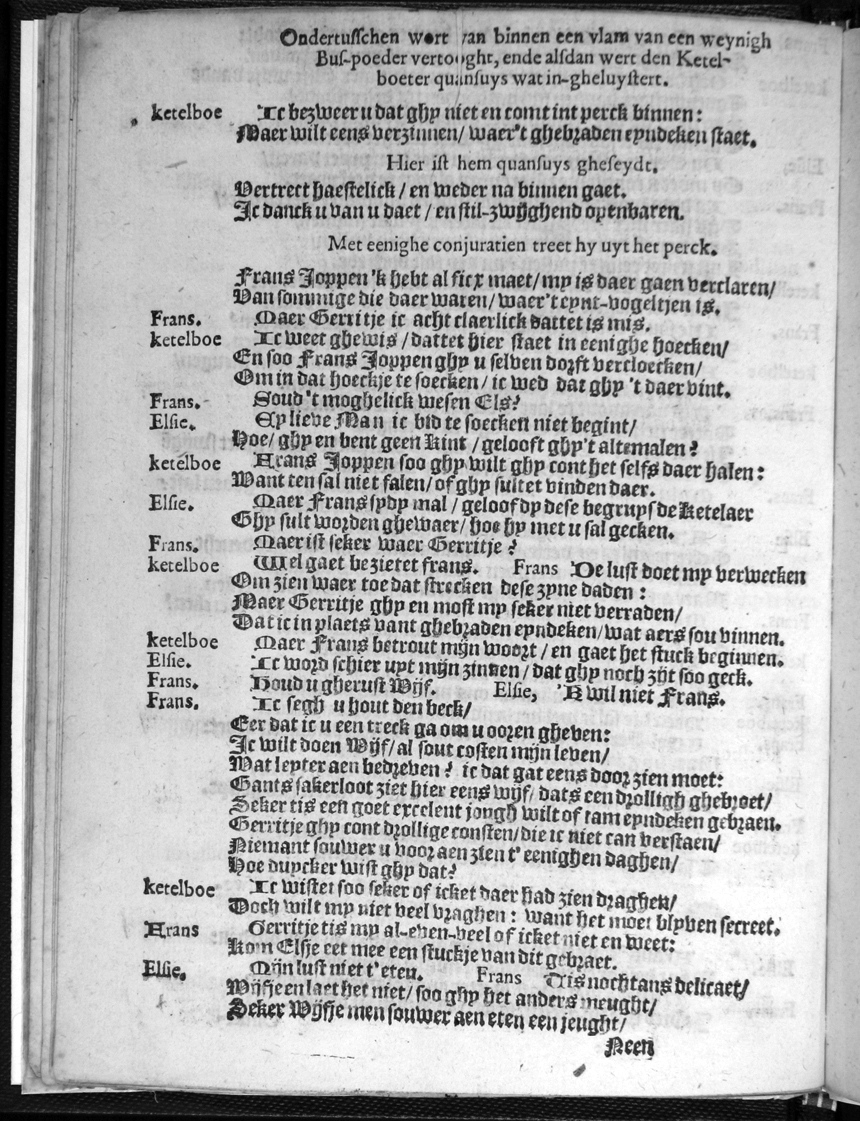 Ondertusschen wort van binnen een vlam van een weynigh
Bus-poeder vertooght, ende alsdan wert den Ketel-
boeter quansuys wat in-gheluystert.
ketelboe Ic bezweer u dat ghy niet en comt int perck binnen:
Maer wilt eens verzinnen/ waer't ghebraden eyndeken staet.
Hier ist hem quansuys gheseydt.
Vertrect haestelick / en weder na binnen gaet.
Ic danck u van u daet / en stil-zwijghend openbaren.
Met eenighe conjuratien treet hy uyt het perck.
Frans Joppen 'k hebt al sicx maet/ my is daer gaen verclaren/
Van sommige die daer waren/ waer't eynt-vogeltjen is.
Frans. Maer Gerritje ic acht claerlick dattet is mis.
ketelboe Ic weet ghewis / dattet hier staet in eenighe hoecken/
En soo Frans Joppen ghy u selven dorft vercloecken/
Om in dat hoeckje te soecken / ic wed dat ghy 't daer vint.
Frans. Soud 't moghelick wesen Els?
Elsie. Ey lieve Man ic bid te soecken niet begint/
Hoe/ ghy en bent geen Kint / gelooft ghy't altemalen?
ketelboe Frans Joppen soo ghy wilt ghy cont het selfs daer halen:
Want ten sal niet falen/ of ghy sult et vinden daer.
Elsie. Maer Frans sydy mal / geloof dy dese begruys de Ketelaer
Ghy sult worden ghewaer/ hoe hy met u sal gecken.
Frans. Maer ist seker waer Gerritje?
ketelboe Wel gaet bezietet frans. Frans De lust doet my verwecken
Om zien waer toe dat strecken dese zyne daden:
Maer Gerritje ghy en most my seker niet verraden/
Dat ic in plaets vant ghebraden eyndeken/ wat aers sou vinnen.
ketelboe Maer Frans betrout mijn woort / en gaet het stuck beginnen.
Elsie. Ic word schier uyt mijn zinnen / dat ghy noch zijt soo geck.
Frans. Houd u gherust Wijf. Elsie, 'K wil niet Frans.
Frans. Ic segh u hout den beck/
Eer dat ic u een treck ga om u ooren gheven:
Ic wilt doen Wijf/ al sout costen mijn leven/
Wat leyter aen bedreven? ic dat gat eens door zien moet:
Gants sakerloot ziet hier eens wijf/ dats een drolligh ghebroet/
Seker tis een goet excelent jongh wilt of tam eyndeken gebraen.
Gerritje ghy cont drollige consten/ die ic niet can verstaen/
Niemant souwer u voor aen zien t' eenighen daghen/
Hoe duycker wist ghy dat?
ketelboe Ic wistet soo seker of icket daer had zien draghen/
Doch wilt my niet veel vraghen: want het moet blyven secreet.
Frans Gerritje tis my al-even-veel of icket niet en weet:
Kom Elsje eet mee een stuckje van dit gebraet.
Elsie. Mijn lust niet t' eten. Frans Tis nochtans delicaet/
Wijfje en laet het niet/ soo ghy het anders meught/
Seker Wijfje men souwer aen eten een jeught/
Neen